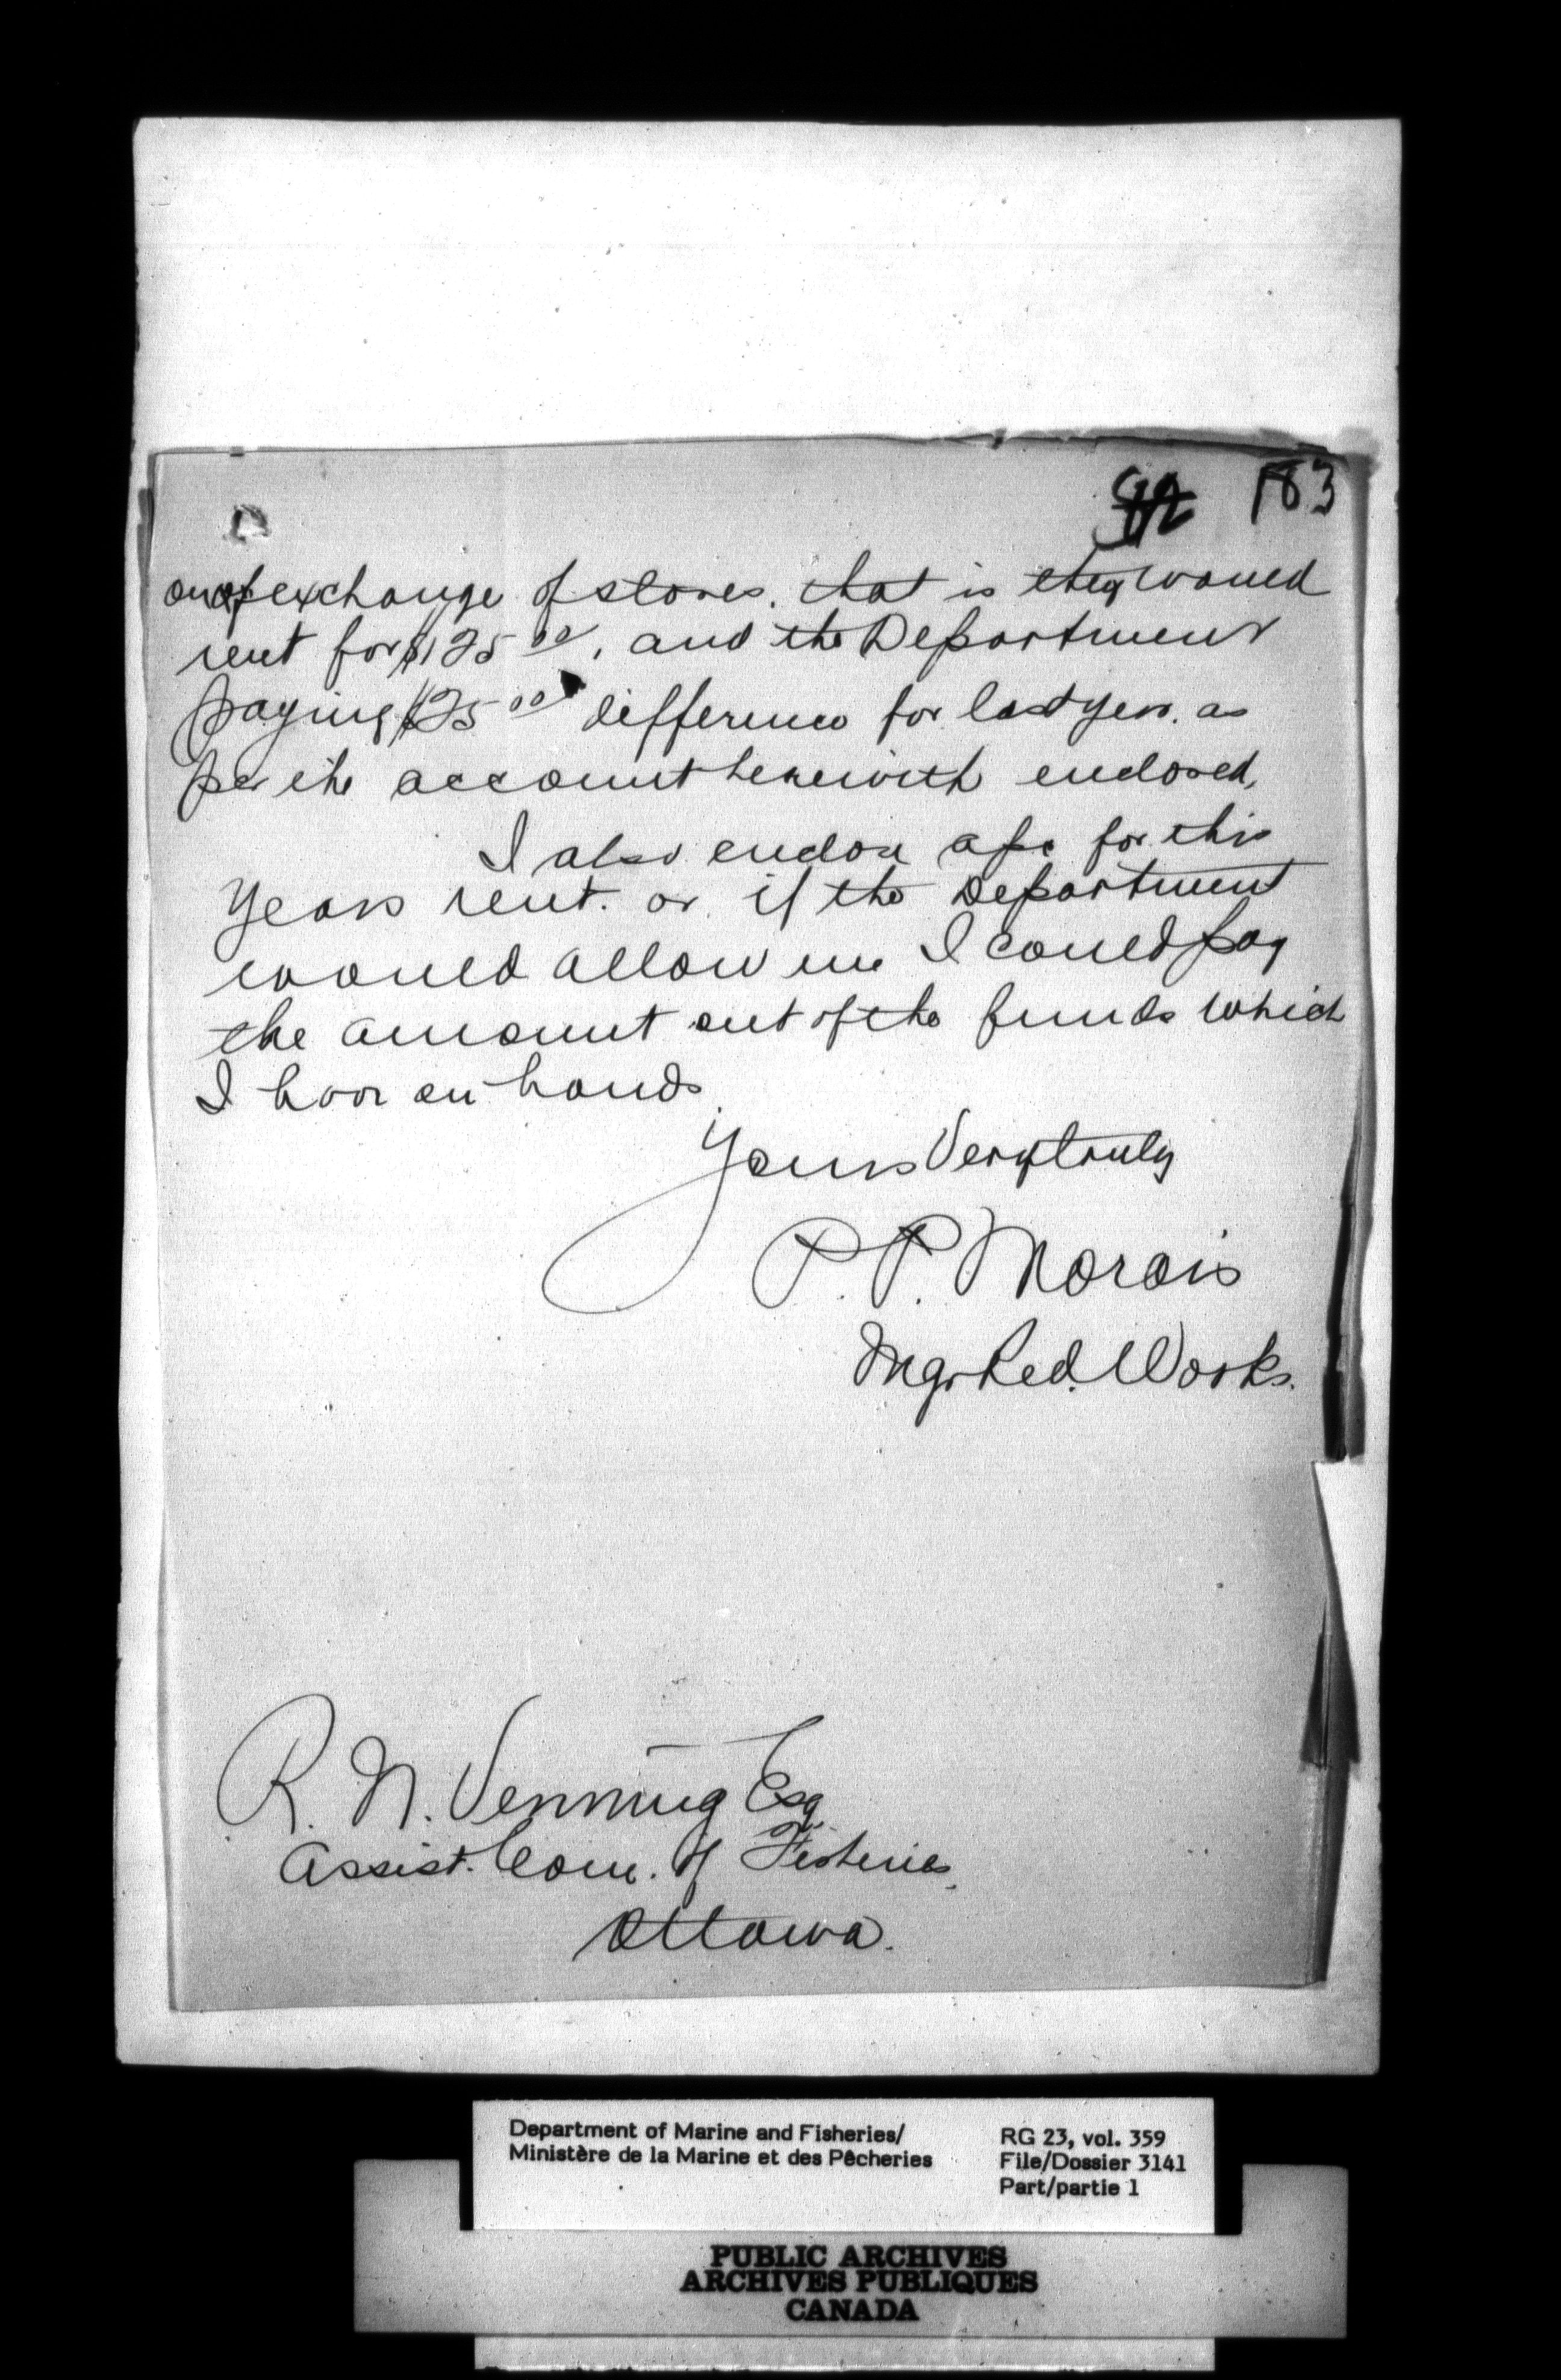 183
exchange of stores. that is they would
rent for $125 00, and the Department
paying $25 00 difference for last year. as
per the account herewith enclosed,
I also enclose a/c for this
Years rent. or if the Department
would allow me I could pay
the amount out of the funds which
I have on hands.
Yours Very truly
P. P. Morais
Mgr Red. Works.
R. N. Venning Esq.
Assist. Com. of Fisheries,
Ottawa.
Department of Marine and Fisheries/
Ministère de la Marine et des Pêcheries
RG 23, vol. 359
File/Dossier 3141
Part/partie 1
PUBLIC ARCHIVES
ARCHIVES PUBLIQUES
CANADA